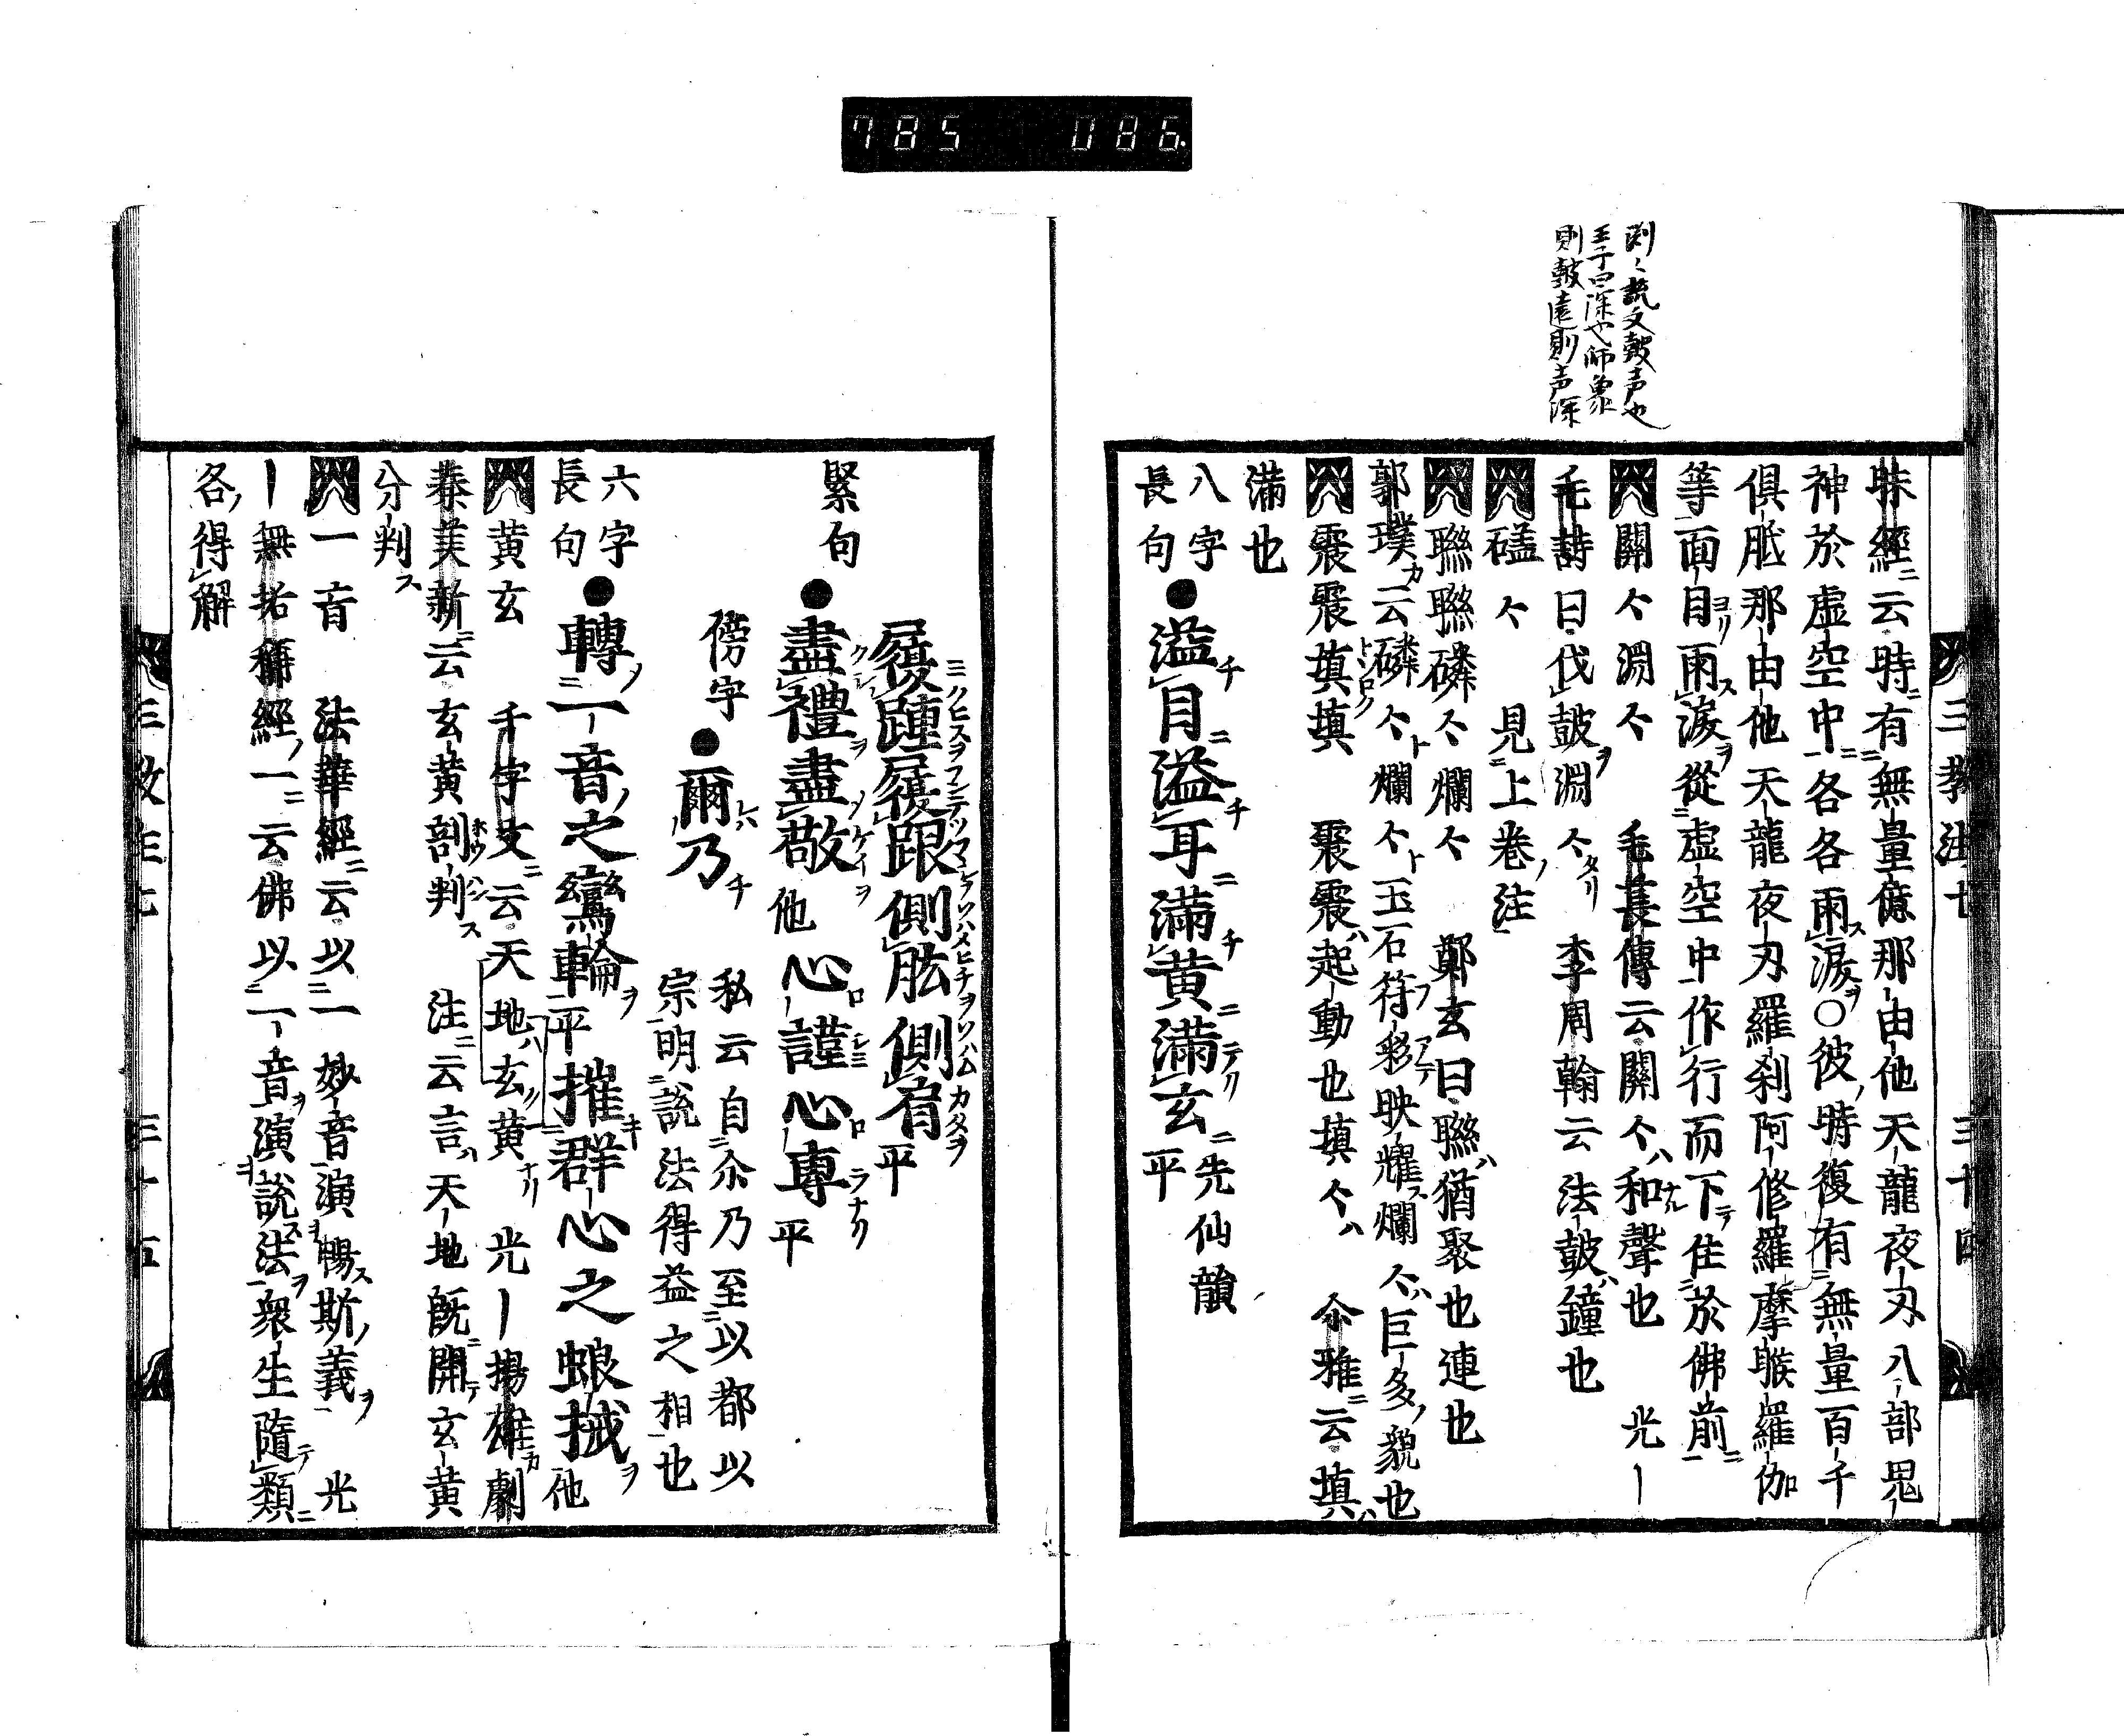 785 086
渕〻説文皷声也
王子曰深也師象
則皷遠則声深
昧經云時有無量億那由他天龍夜叉八部鬼
神於虚空中各各雨涙〇彼時復有無量百千
俱胝那由他天龍夜叉羅刹阿修羅摩睺羅伽
等面目雨涙從虚空中作行而下住於佛前
闐々淵々 毛萇傳云闐々和聲也 光ー
毛詩曰伐皷淵々 李周翰云法皷鐘也
磕々 見上卷注
聯聯磷々爛々 鄭玄曰聯猶聚也連也
郭璞云磷々爛々玉石符彩映耀爛々巨多貌也
震震填填 震震起動也填々 尒雅云填
滿也
八字
長句
●溢目溢耳滿黄滿玄 平 先仙韻
三教注七 三十四
履踵履跟側肱側肩 平
緊句
●盡禮盡敬 他 心謹心專 平
傍字
●爾乃
私云自尒乃至以都以
宗明説法得益之相也
六字
長句
●轉一音之鸞輪 平 摧群心之蜋拭 他
黄玄 千字文云天地玄黄 光ー揚雄劇
秦美新云玄黄剖判 注云言天地既開玄黄
分判
一音 法華經云以一妙音演暢斯義 光
ー無垢稱經一云佛以一音演説法衆生隨類
各得解
三教注七 三十五